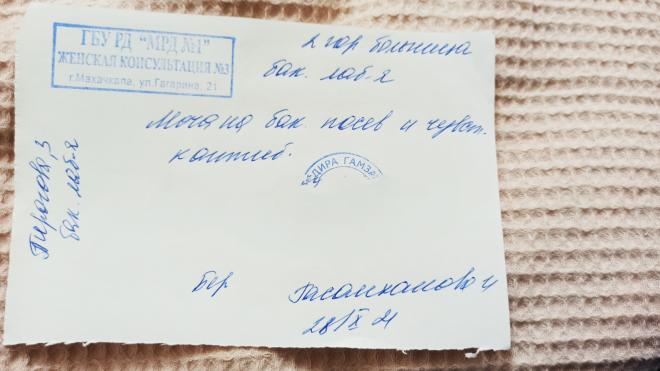 ГБУ РД "МРД №1"
ЖЕНСКАЯ КОНСУЛЬТАЦИЯ №3
г.Махачкала, ул.Гагарина, 21
2 гор больница
бак. лаб-я
Моча на бак. посев и чувст.
к антиб.
ДИРА ГАМЗА
Пирогова, 3
бак. лаб-я
Бер
Гасанханова И
28/IX 21